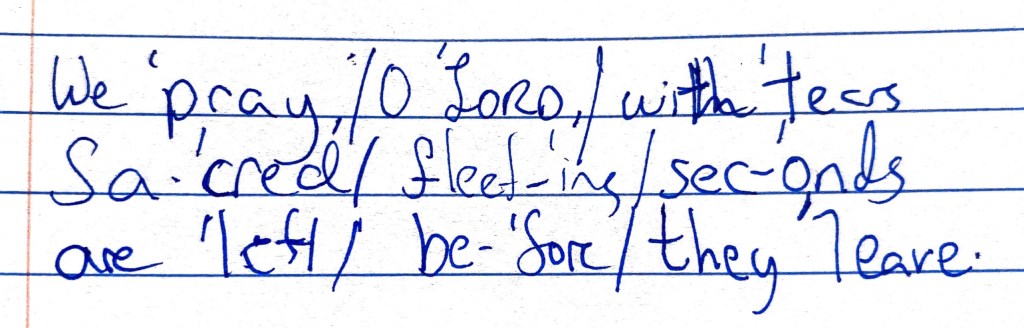 We 'pray,/O 'LORD,/with 'tears
Sa-'cred/ fleet-'ing/sec-'onds
are 'left/ be-'fore/they 'leave.